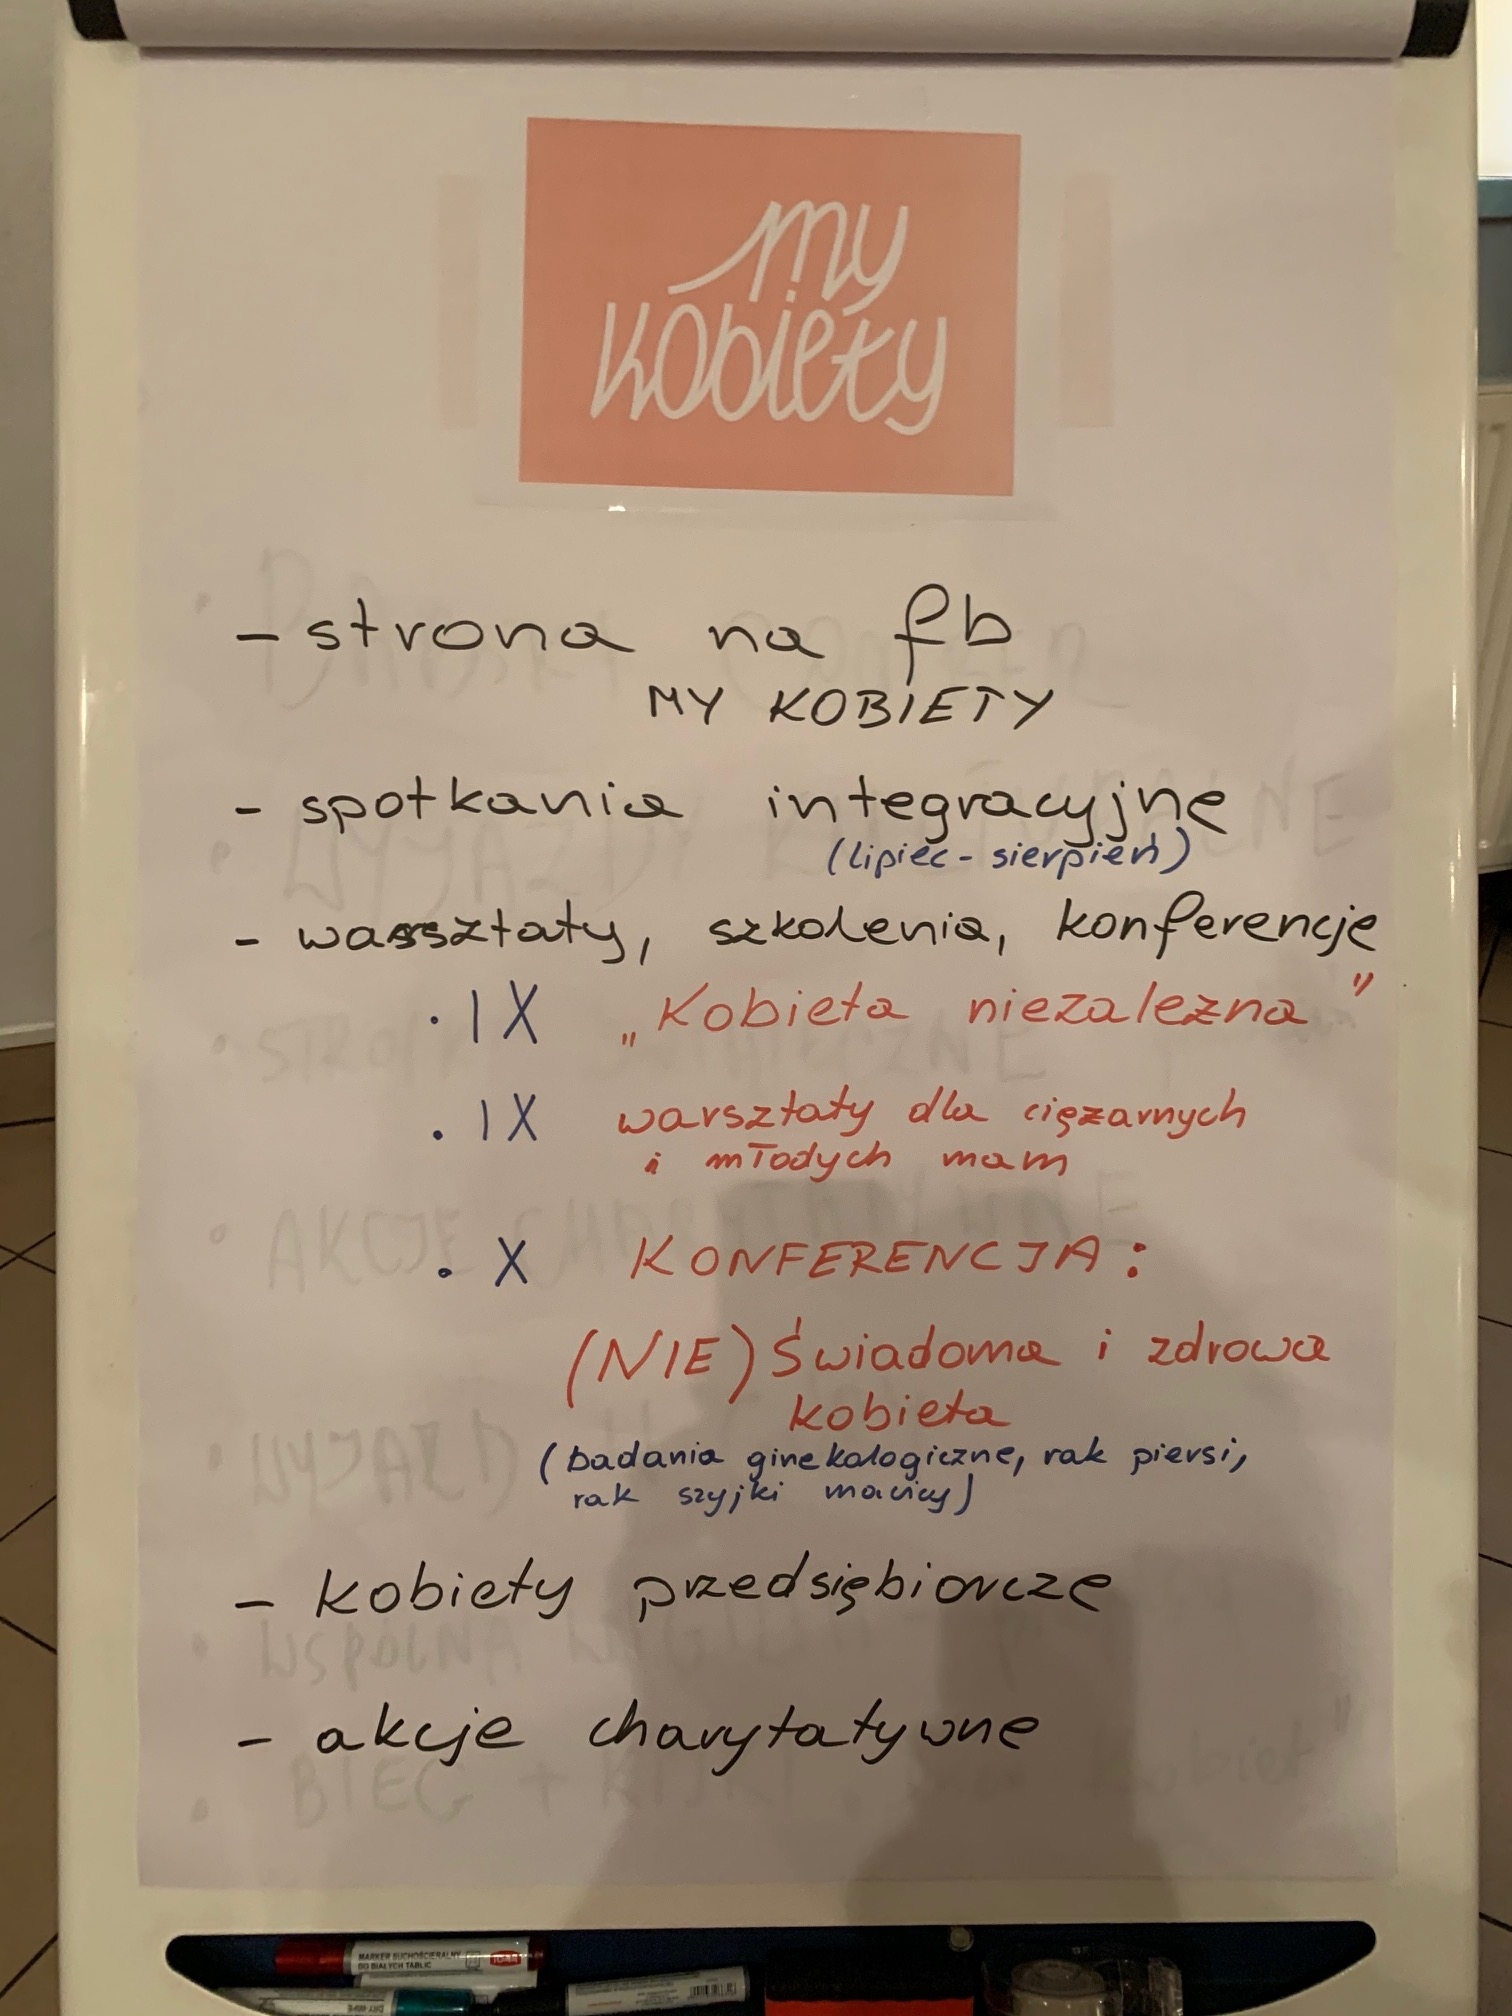 my
kobiety
- strona na fb
MY KOBIETY
- spotkania integracyjne
(lipiec - sierpień)
- warsztaty, szkolenia, konferencje
. IX „Kobieta niezależna”
. IX warsztaty dla ciężarnych
i młodych mam
. X KONFERENCJA:
(NIE) Świadoma i zdrowa
kobieta
(badania ginekologiczne, rak piersi,
rak szyjki macicy)
- kobiety przedsiębiorcze
- akcje charytatywne
MARKER SUCHOŚCIERALNY
DO BIAŁYCH TABLIC
DRY-WIPE